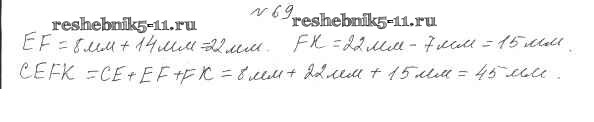 № 69
reshebnik5-11.ru reshebnik5-11.ru
EF = 8мм + 14мм = 22мм. FK = 22мм - 7мм = 15мм.
CEFK = CE + EF + FK = 8мм + 22мм + 15мм = 45мм.